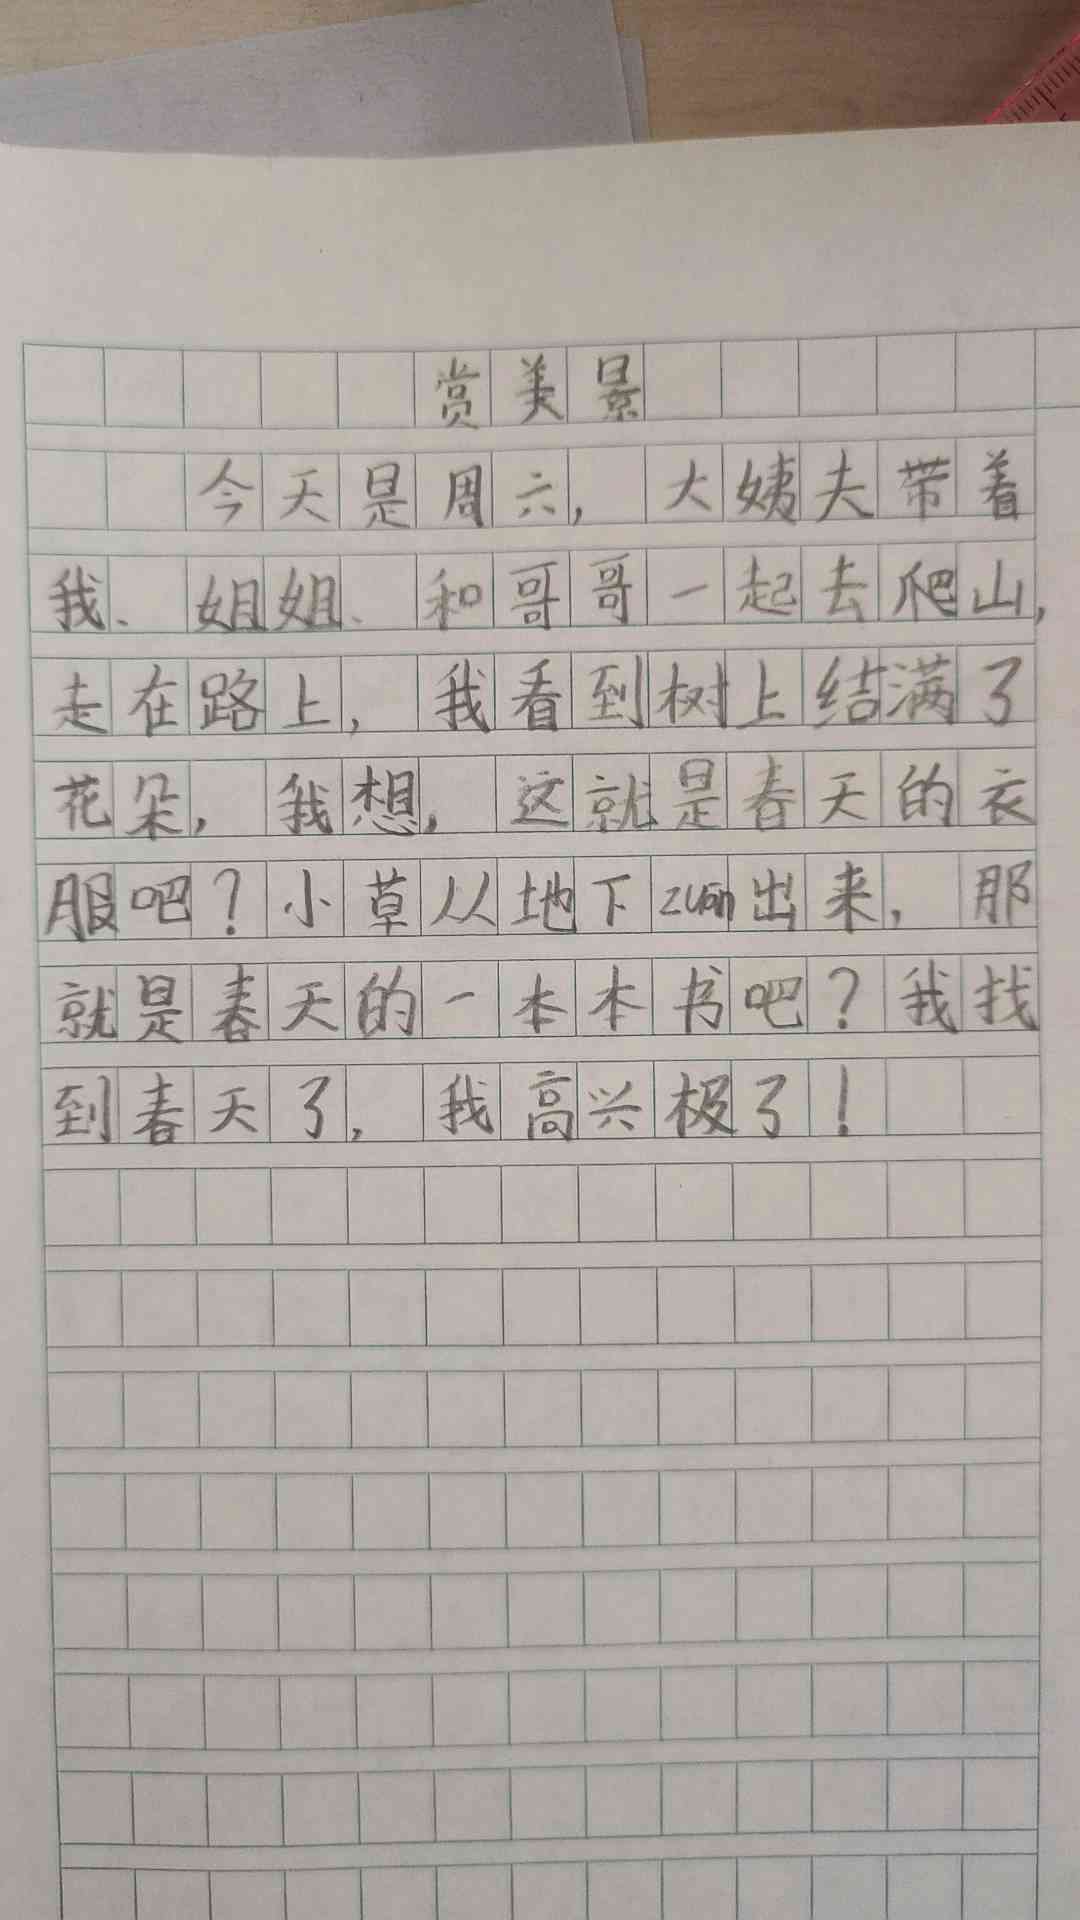 赏美景
今天是周六，大姨夫带着
我、姐姐、和哥哥一起去爬山，
走在路上，我看到树上结满了
花朵，我想，这就是春天的衣
服吧？小草从地下zuān出来，那
就是春天的一本本书吧？我找
到春天了，我高兴极了！